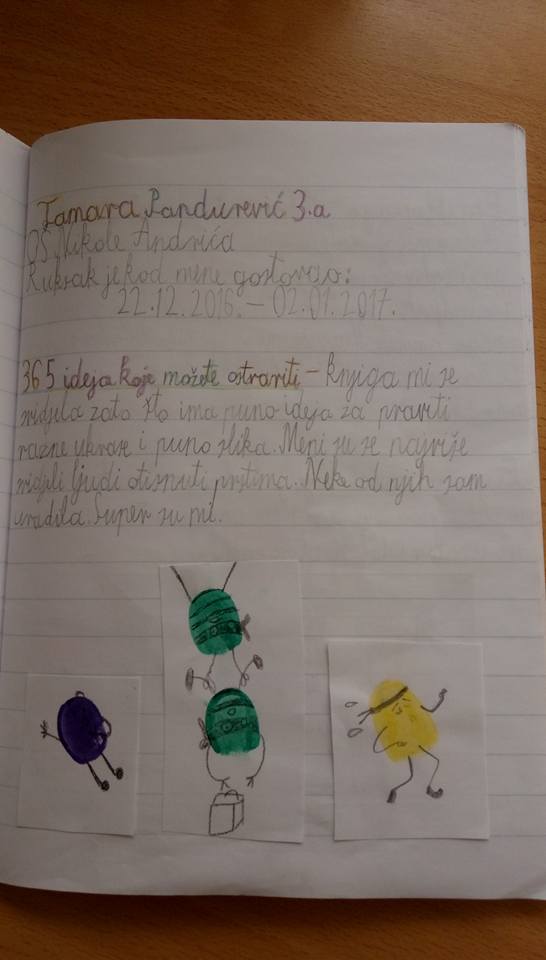 Tamara Pandurević 3.a
OŠ Nikole Andrića
Ruksak je kod mene gostovao:
22.12.2016. – 02.01.2017.
365 ideja koje možete ostvariti – knjiga mi se
svidjela zato što ima puno ideja za praviti
razne ukrase i puno slika. Meni su se najviše
svidjeli ljudi otisnuti prstima. Neke od njih sam
uradila. Super su mi.